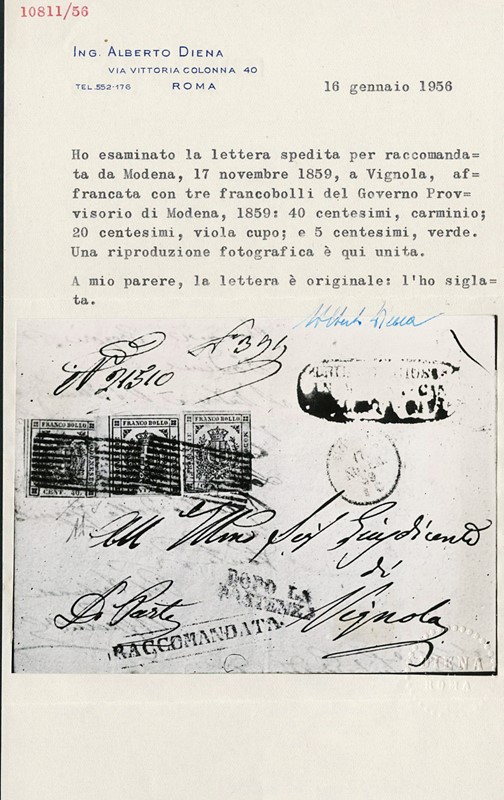 10811/56
ING. ALBERTO DIENA
VIA VITTORIA COLONNA 40
TEL. 552-176 ROMA
16 gennaio 1956
Ho esaminato la lettera spedita per raccomanda=
ta da Modena, 17 novembre 1859, a Vignola, af=
francata con tre francobolli del Governo Prov=
visorio di Modena, 1859: 40 centesimi, carminio;
20 centesimi, viola cupo; e 5 centesimi, verde.
Una riproduzione fotografica è qui unita.
A mio parere, la lettera è originale: l'ho sigla=
ta.
Alberto Diena
FRANCO BOLLO
FRANCO BOLLO
FRANCO BOLLO
CENT. 40.
di
DOPO LA
PARTENZA
Vignola
RACCOMANDATA
DIENA
ROMA